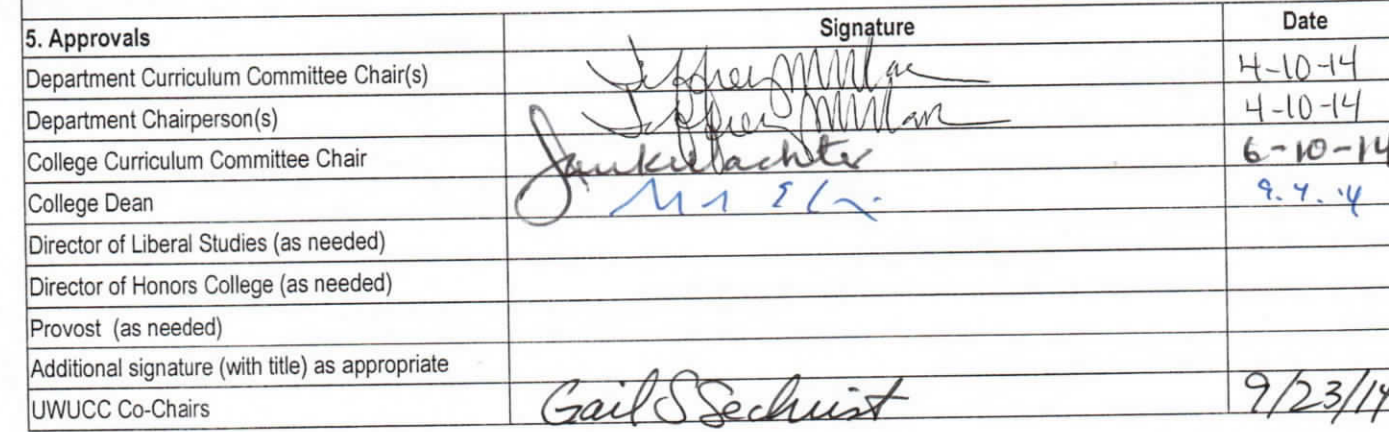 5. Approvals Signature Date
Department Curriculum Committee Chair(s) Jeffrey 4-10-14
Department Chairperson(s) Jeffrey 4-10-14
College Curriculum Committee Chair 6-10-14
College Dean 9.4.14
Director of Liberal Studies (as needed)
Director of Honors College (as needed)
Provost (as needed)
Additional signature (with title) as appropriate
UWUCC Co-Chairs Gail S Sechrist 9/23/14